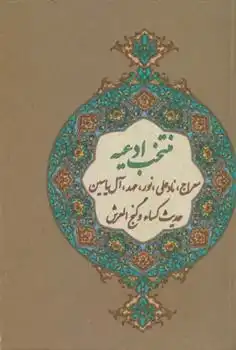 منتخب ادعیه
معراج، نادعلی، نور، عهد، آل یاسین
حدیث کساء و گنج العرش